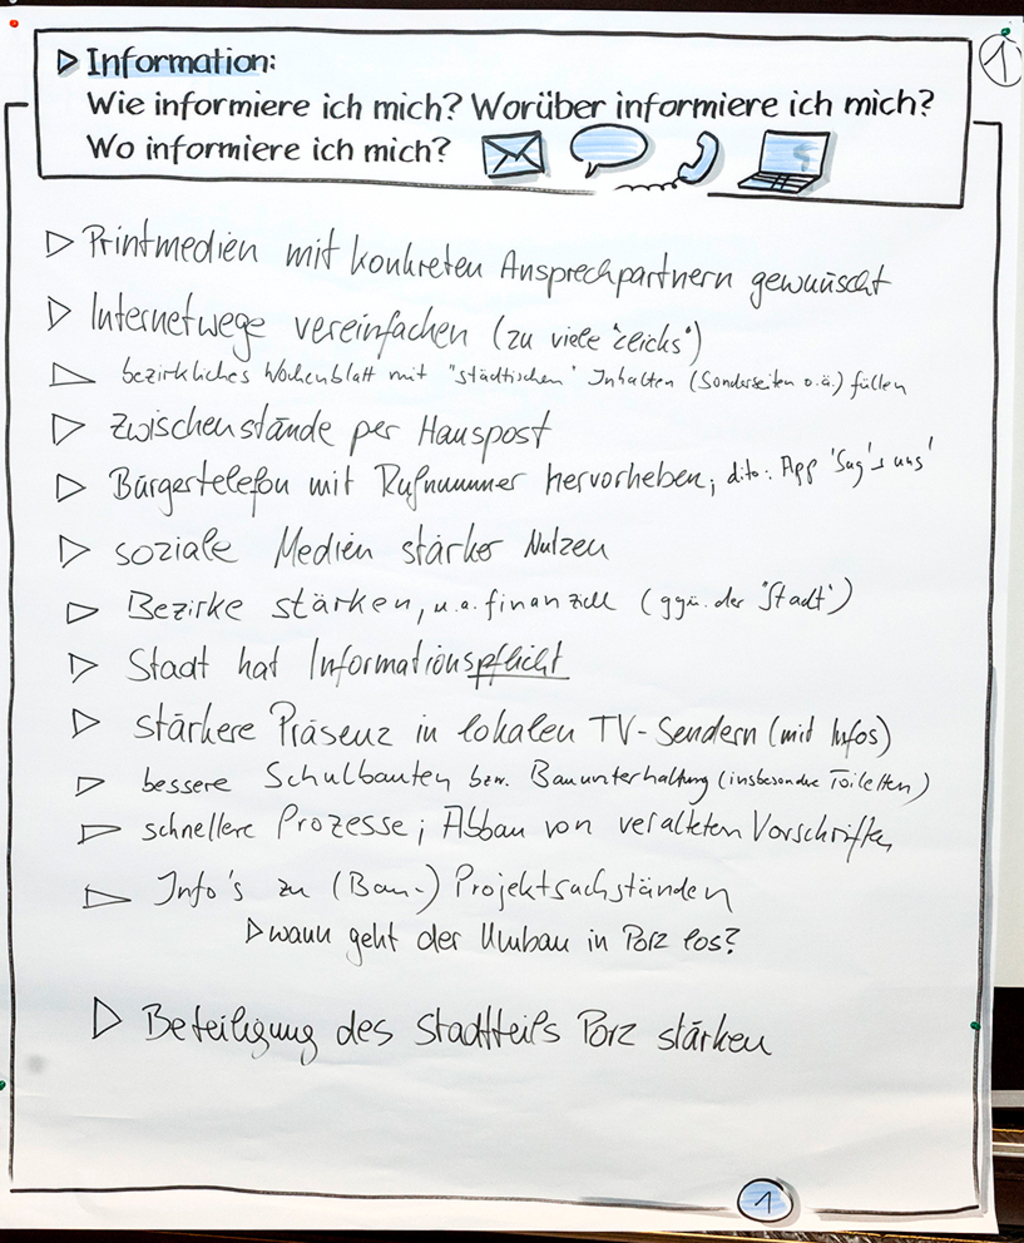 1
▷ Information:
Wie informiere ich mich? Worüber informiere ich mich?
Wo informiere ich mich?
▷ Printmedien mit konkreten Ansprechpartnern gewünscht
▷ Internetwege vereinfachen (zu viele "clicks")
▷ bezirkliches Wochenblatt mit "städtischen" Inhalten (Sonderseiten o.ä.) füllen
▷ Zwischenstände per Hauspost
▷ Bürgertelefon mit Rufnummer hervorheben; dito: App 'Sag's uns'
▷ soziale Medien stärker Nutzen
▷ Bezirke stärken, u.a. finanziell (ggü. der "Stadt")
▷ Stadt hat Informationspflicht
▷ stärkere Präsenz in lokalen TV-Sendern (mit Infos)
▷ bessere Schulbauten bzw. Bauunterhaltung (insbesondre Toiletten)
▷ schnellere Prozesse; Abbau von veralteten Vorschriften
▷ Info's zu (Bau-) Projektsachständen
▷ wann geht der Umbau in Porz los?
▷ Beteiligung des Stadtteils Porz stärken
1